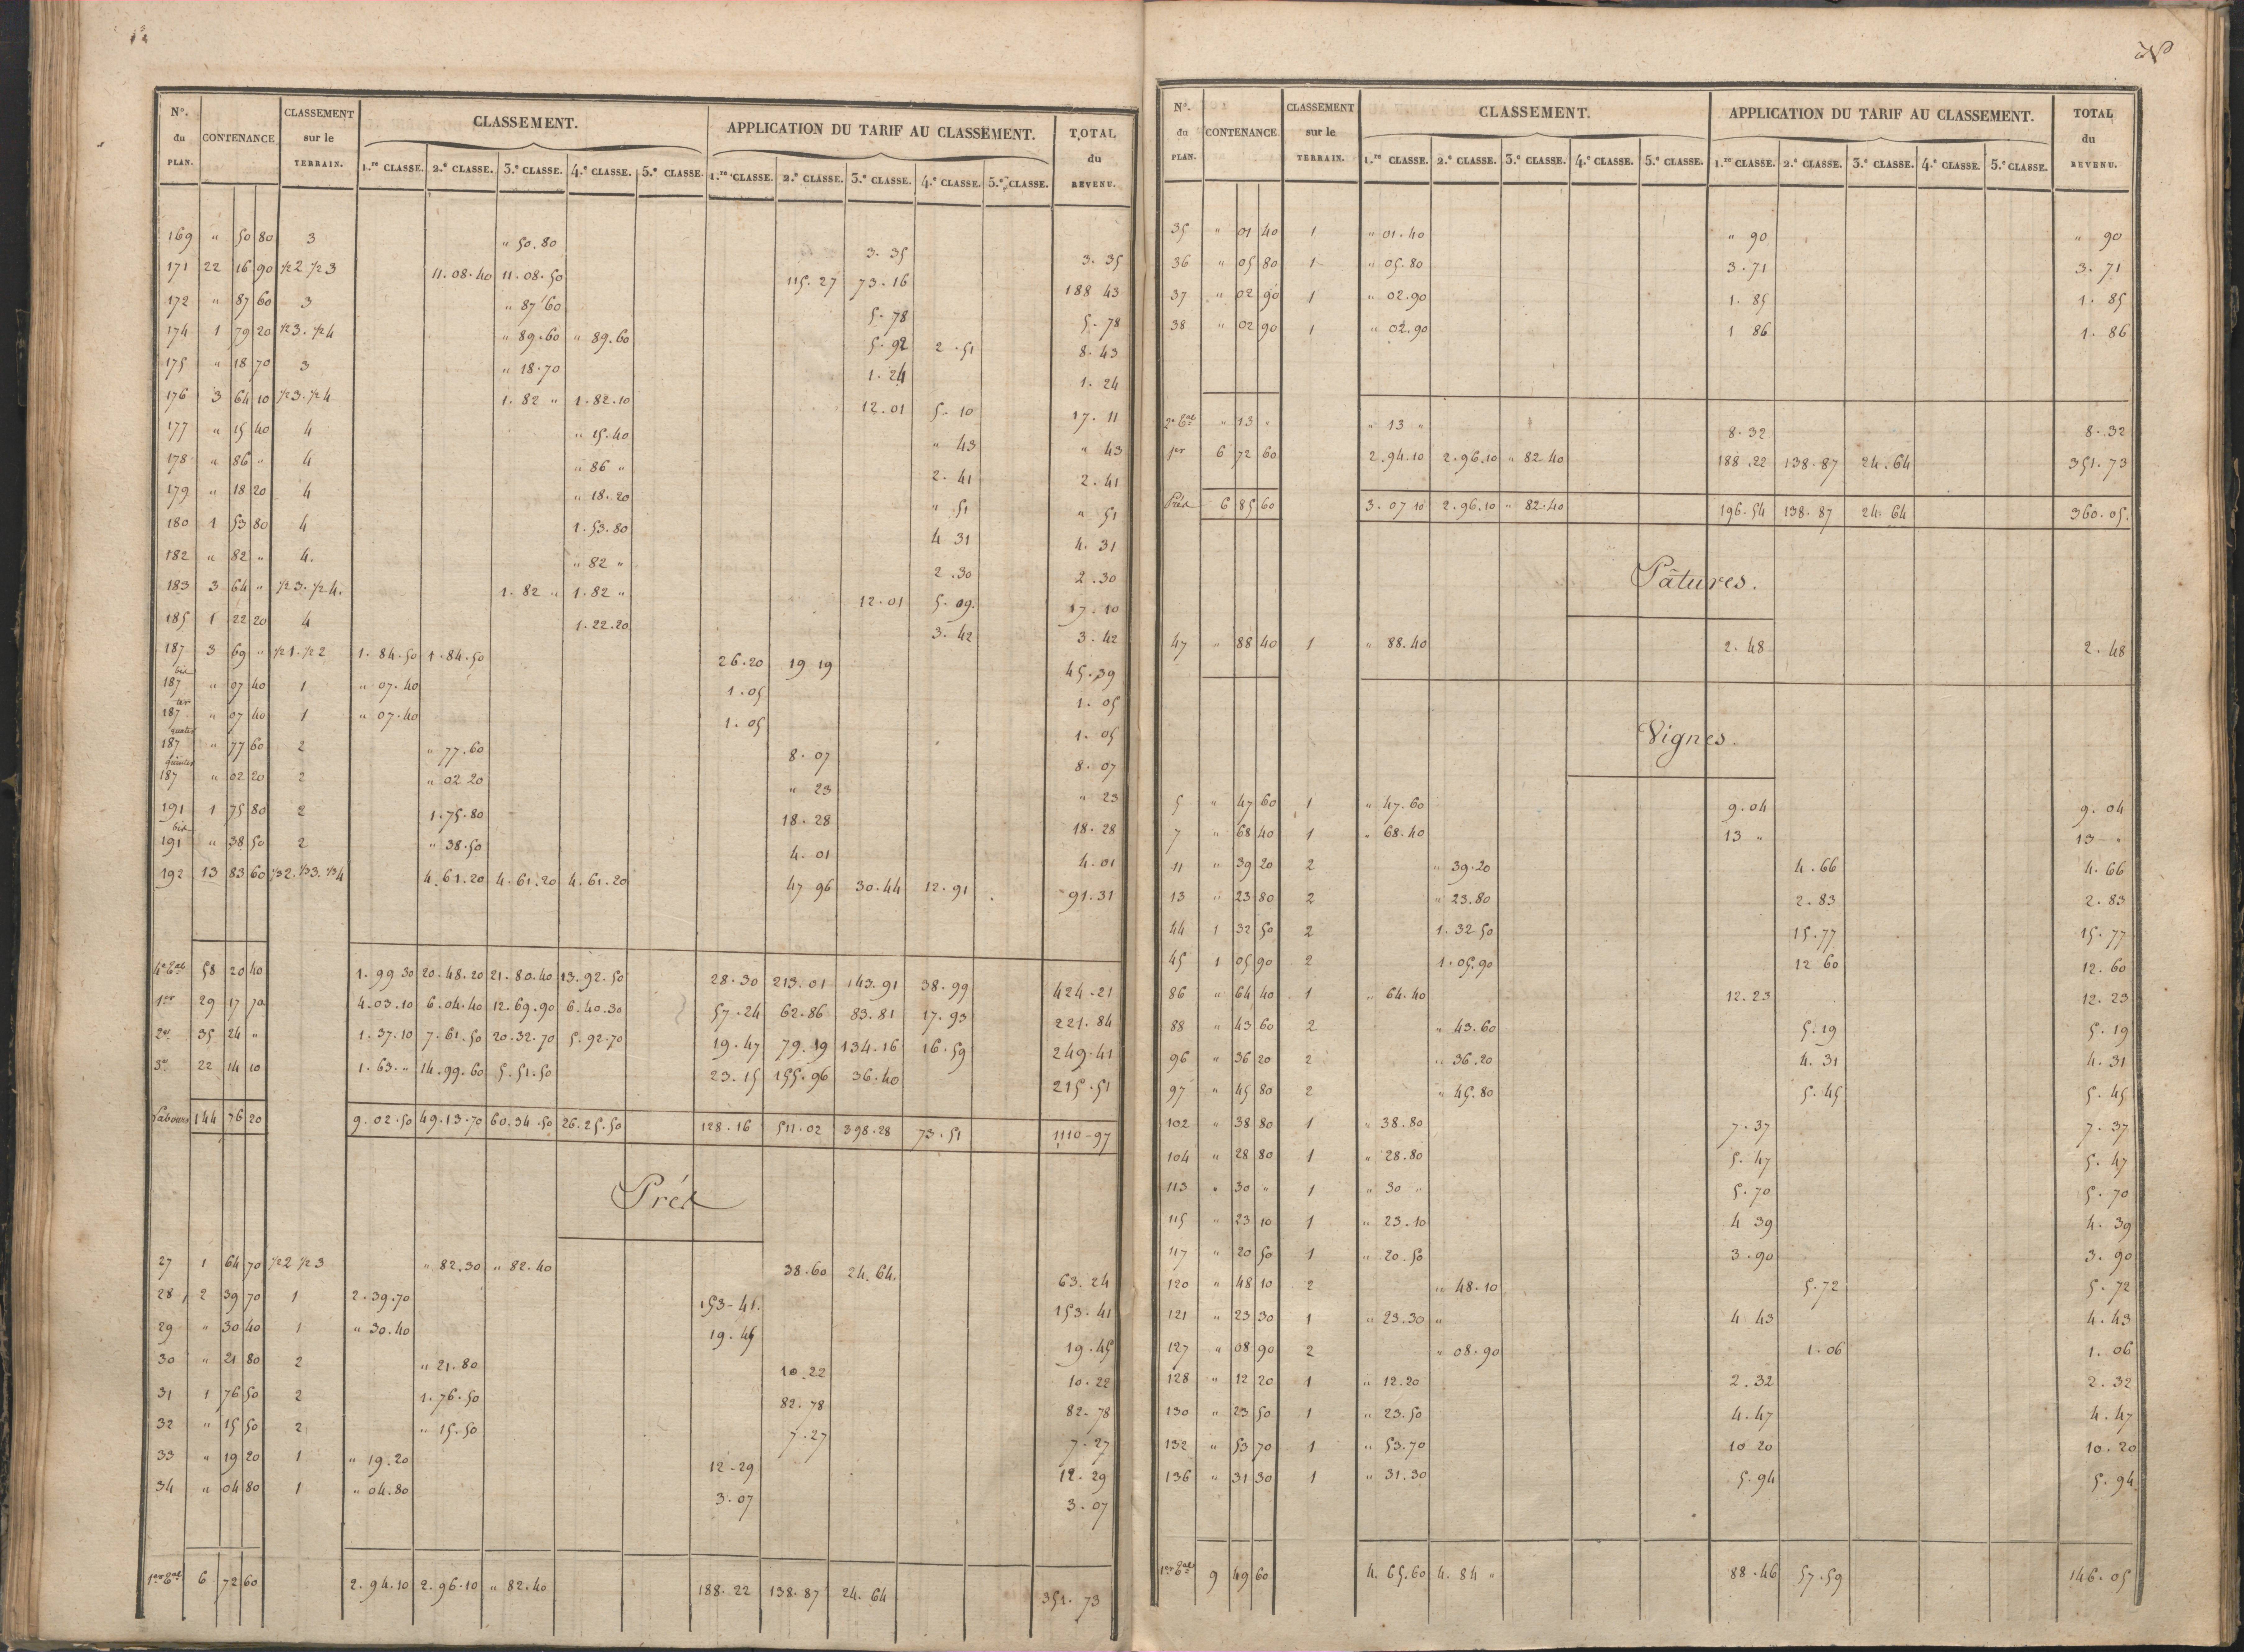 N.º du PLAN. CONTENANCE CLASSEMENT sur le TERRAIN. CLASSEMENT. APPLICATION DU TARIF AU CLASSEMENT. TOTAL du REVENU.
1.re CLASSE. 2.e CLASSE. 3.e CLASSE. 4.e CLASSE. 5.e CLASSE. 1.re CLASSE. 2.e CLASSE. 3.e CLASSE. 4.e CLASSE. 5.e CLASSE.
169 " 50 80 3 " 50.80 3.35 3.35
171 22 16 90 1/2 2. 1/2 3 11.08.40 11.08.50 115.27 73.16 188 43
172 " 87 60 3 " 87 60 5.78 5.78
174 1 79 20 1/2 3. 1/2 4 " 89.60 " 89.60 5.92 2.51 8.43
175 " 18 70 3 " 18.70 1.24 1.24
176 3 64 10 1/2 3. 1/2 4 1.82 " 1.82.10 12.01 5.10 17.11
177 " 15 40 4 " 15.40 " 43 " 43
178 " 86 " 4 " 86 " 2.41 2.41
179 " 18 20 4 " 18.20 " 51 " 51
180 1 53 80 4 1.53.80 4 31 4.31
182 " 82 " 4. " 82 " 2.30 2.30
183 3 64 " 1/2 3. 1/2 4. 1.82 " 1.82 " 12.01 5.09. 17.10
185 1 22 20 4 1.22.20 3.42 3.42
187 3 69 " 1/2 1. 1/2 2 1.84.50 1.84.50 26.20 19 19 45.39
187 bis " 07 40 1 " 07.40 1.05 1.05
187 ter " 07 40 1 " 07.40 1.05 1.05
187 quater " 77 60 2 " 77.60 8.07 8.07
187 " 02 20 2 " 02 20 " 23 " 23
191 1 75 80 2 1.75.80 18.28 18.28
191 bis " 38 50 2 " 38.50 4.01 4.01
192 13 83 60 1/3 2. 1/3 3. 1/3 4 4.61.20 4.61.20 4.61.20 47 96 30.44 12.91 91.31
4e Tal 58 20 40 1.99.30 20.48.20 21.80.40 13.92.50 28.30 213.01 143.91 38.99 424.21
1er 29 17 70 4.03.10 6.04.40 12.69.90 6.40.30 57.24 62.86 83.81 17.93 221.84
2e 35 24 " 1.37.10 7.61.50 20.32.70 5.92.70 19.47 79.19 134.16 16.59 249.41
3e 22 14 10 1.63." 14.99.60 5.51.50 23.15 155.96 36.40 215.51
Labours 144 76 20 9.02.50 49.13.70 60.34.50 26.25.50 128.16 511.02 398.28 73.51 1110-97
Prés
27 1 64 70 1/2 2 1/2 3 " 82.30 " 82.40 38.60 24.64. 63.24
28 2 39 70 1 2.39.70 153-41. 153.41
29 " 30 40 1 " 30.40 19.45 19.45
30 " 21 80 2 " 21.80 10.22 10.22
31 1 76 50 2 1.76.50 82.78 82.78
32 " 15 50 2 " 15.50 7.27 7.27
33 " 19 20 1 " 19.20 12.29 12.29
34 " 04 80 1 " 04.80 3.07 3.07
1er Tal 6 72 60 2.94.10 2.96.10 " 82.40 188.22 138.87 24.64 351.73
N.º du PLAN. CONTENANCE CLASSEMENT sur le TERRAIN. CLASSEMENT. APPLICATION DU TARIF AU CLASSEMENT. TOTAL du REVENU.
1.re CLASSE. 2.e CLASSE. 3.e CLASSE. 4.e CLASSE. 5.e CLASSE. 1.re CLASSE. 2.e CLASSE. 3.e CLASSE. 4.e CLASSE. 5.e CLASSE.
35 " 01 40 1 " 01.40 " 90 " 90
36 " 05 80 1 " 05.80 3.71 3.71
37 " 02 90 1 " 02.90 1.85 1.85
38 " 02 90 1 " 02.90 1 86 1.86
2e Tal " 13 " " 13 " 8.32 8.32
1er 6 72 60 2.94.10 2.96.10 " 82 40 188.22 138.87 24.64 351.73
Prés 6 85 60 3.07 10 2.96.10 " 82.40 196.54 138.87 24.64 360.05.
Pâtures.
47 " 88 40 1 " 88.40 2.48 2.48
Vignes.
5 " 47 60 1 " 47.60 9.04 9.04
7 " 68 40 1 " 68.40 13 " 13 "
11 " 39 20 2 " 39.20 4.66 4.66
13 " 23 80 2 " 23.80 2.83 2.83
44 1 32 50 2 1.32 50 15.77 15.77
45 1 05 90 2 1.05.90 12 60 12.60
86 " 64 40 1 " 64.40 12.23 12.23
88 " 43 60 2 " 43.60 5.19 5.19
96 " 36 20 2 " 36.20 4.31 4.31
97 " 45 80 2 " 45.80 5.45 5.45
102 " 38 80 1 " 38.80 7.37 7.37
104 " 28 80 1 " 28.80 5.47 5.47
113 " 30 " 1 " 30 " 5.70 5.70
115 " 23 10 1 " 23.10 4 39 4.39
117 " 20 50 1 " 20.50 3.90 3.90
120 " 48 10 2 " 48.10 5.72 5.72
121 " 23 30 1 " 23.30 " 4 43 4.43
127 " 08 90 2 " 08.90 1.06 1.06
128 " 12 20 1 " 12.20 2.32 2.32
130 " 23 50 1 " 23.50 4.47 4.47
132 " 53 70 1 " 53.70 10 20 10.20
136 " 31 30 1 " 31.30 5.94 5.94
1er Tal 9 49 60 4.65.60 4.84 " 88.46 57.59 146.05